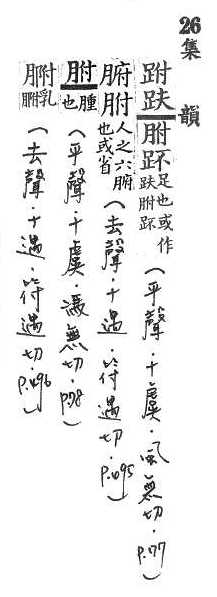 26集韻
跗趺胕䟔足也或作趺胕䟔（平聲．十虞．風無切．P.77）
腑胕人之六腑也或省（去聲．十遇．符遇切．P.495）
胕腫也（平聲．十虞．馮無切．P.78）
胕乳胕（去聲．十遇．符遇切．P.496）